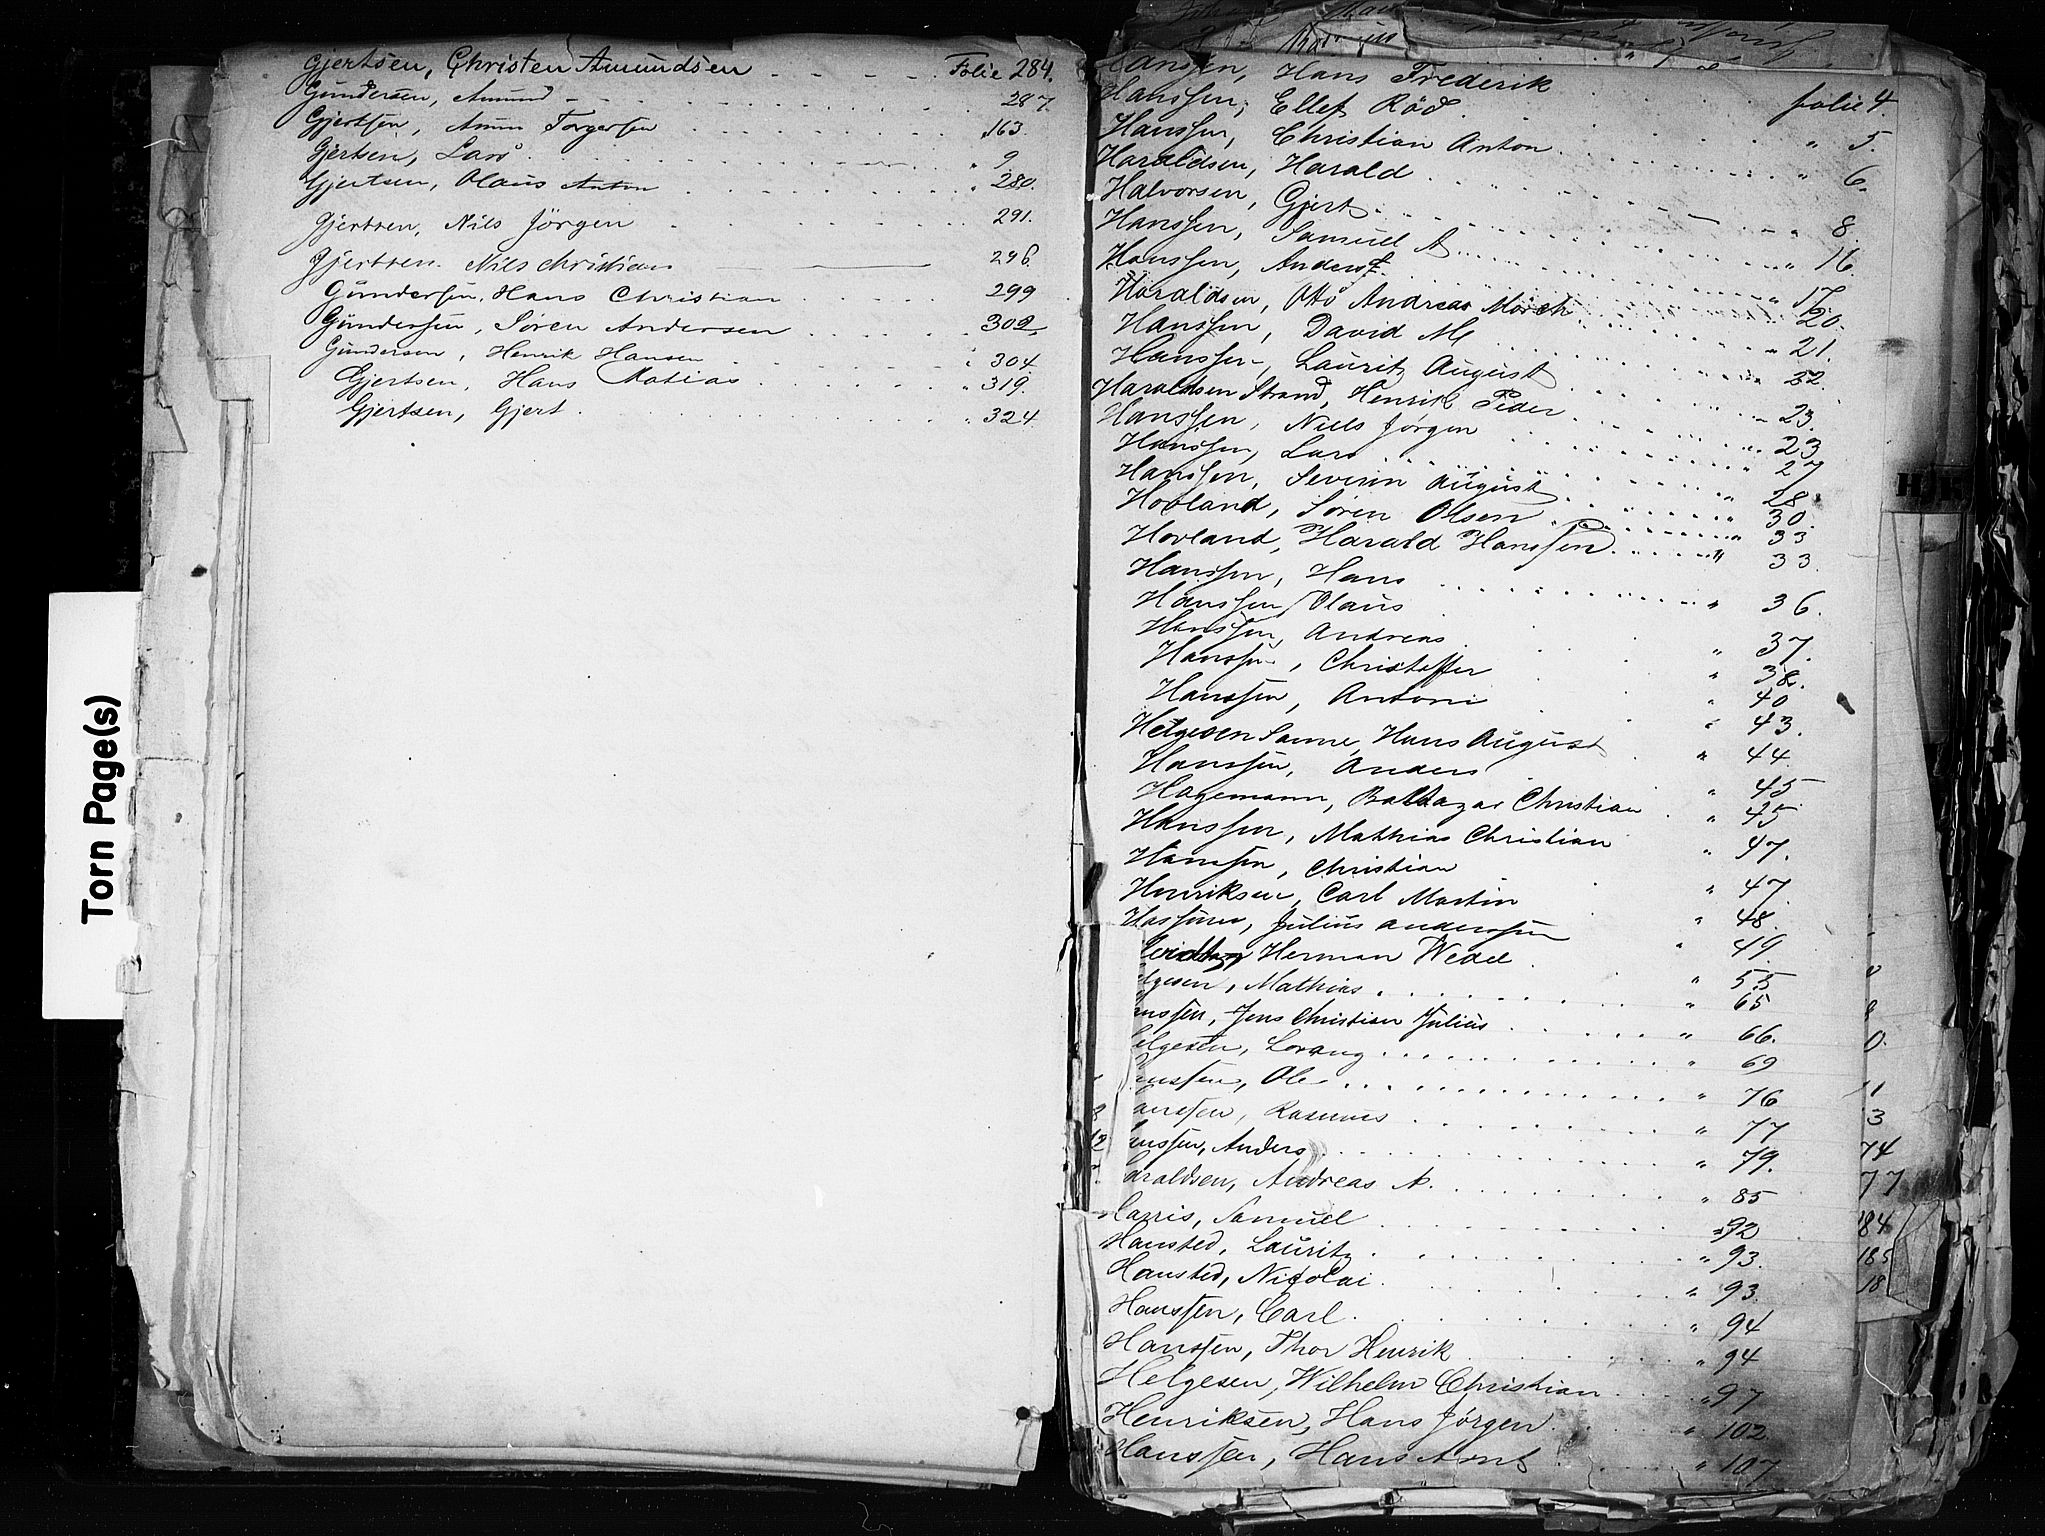 Gjertsen, Christen Amundsen - - - - Folie 284.
Gundersen, Amund - - - - 287.
Gjertsen, Torgersen . . . . . „ 163.
Gjertsen, Lars . . . . „ 9
Gjertsen, Olaus Anton . . . . „ 280.
Gjertsen, Nils Jörgen . . . . 291.
Gjertsen. Nils Christian 296.
Gundersen, Hans Christian . . . . 299
Gundersen, Søren Andersen . . . . 302
Gundersen, Henrik Hansen . . . . „ 304
Gjertsen, Hans Matias . . . . „ 319.
Gjertsen, Gjert . . . . „ 324.
Torn Page(s)
Hanssen, Hans Frederik
Hanssen, Ellef Röd. folie 4.
Hanssen, Christian Anton . . . . „ 5.
Haraldsen, Harald . . . . „ 6.
Halvorsen, Gjert . . . . „ 8
Hanssen, Samuel A . . . . „ 16.
Hanssen, Anders . . . . „ 17
Haraldsen, Otto Andreas Mörch . . . . 20.
Hanssen, David M. . . . . „ 21.
Hanssen, Lauritz August . . . . 22.
Haraldsen Strand, Henrik Peder . . . . 23.
Hanssen, Niels Jørgen . . . . „ 23
Hanssen, Lars . . . . „ 27
Hanssen, Severin August . . . . „ 28
Hovland, Søren Olsen . . . . „ 30.
Hovland, Harald Hanssen . . . . „ 33
Hanssen, Hans . . . . „ 33.
Hanssen, Olaus „ 36.
Hanssen, Andreas „ 37.
Hanssen, Christoffer „ 38.
Hanssen, Antoni „ 40
Helgesen Sanne, Hans August „ 43.
Hanssen, Anders „ 44
Hagemann, Baltazar Christian „ 45
Hanssen, Mathias Christian „ 45
Hanssen, Christian „ 47.
Henriksen, Carl Martin „ 47
Julius Anderssen „ 48.
Herman Wedel „ 49.
lgesen, Mathias . . . . „ 55
nssen, Jens Christian Julius . . . . „ 65
elgesen, Lorang . . . . „ 66.
anssen, Ole . . . . „ 69
anssen, Rasmus . . . . „ 76
anssen, Anders . . . . „ 77
araldsen, Andreas A. . . . . „ 79.
Harris, Samuel . . . . „ 85
Hansted, Lauritz . . . . „ 92
Hansted, Nicolai . . . . „ 93.
Hanssen, Carl . . . . „ 93
Hanssen, Thor Henrik . . . . „ 94
Helgesen, Wilhelm Christian . . . . „ 94
Henriksen, Hans Jørgen . . . . „ 97
Hanssen, Hans Arnt . . . . „ 102
„ 107
0.
11
3
74
77
184
185
18